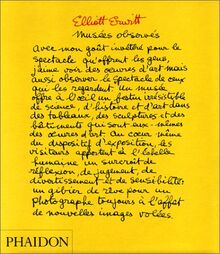 Elliott Erwitt
Musées observés
Avec mon goût invétéré pour le
spectacle qu'offrent les gens,
j'aime voir des œuvres d'art mais
aussi observer le spectacle de ceux
qui les regardent. Un musée
offre à l'œil un festin irrésistible
de scènes d'histoire et d'art dans
des tableaux, des sculptures et des
bâtiments qui sont eux-mêmes
des œuvres d'art. Au cœur même
du dispositif d'exposition, les
visiteurs apportent à l'échelle
humaine un surcroît de
réflexion, de jugement, de
divertissement et de sensibilité:
un gibier de rêve pour un
photographe toujours à l'affût
de nouvelles images volées.
PHAIDON